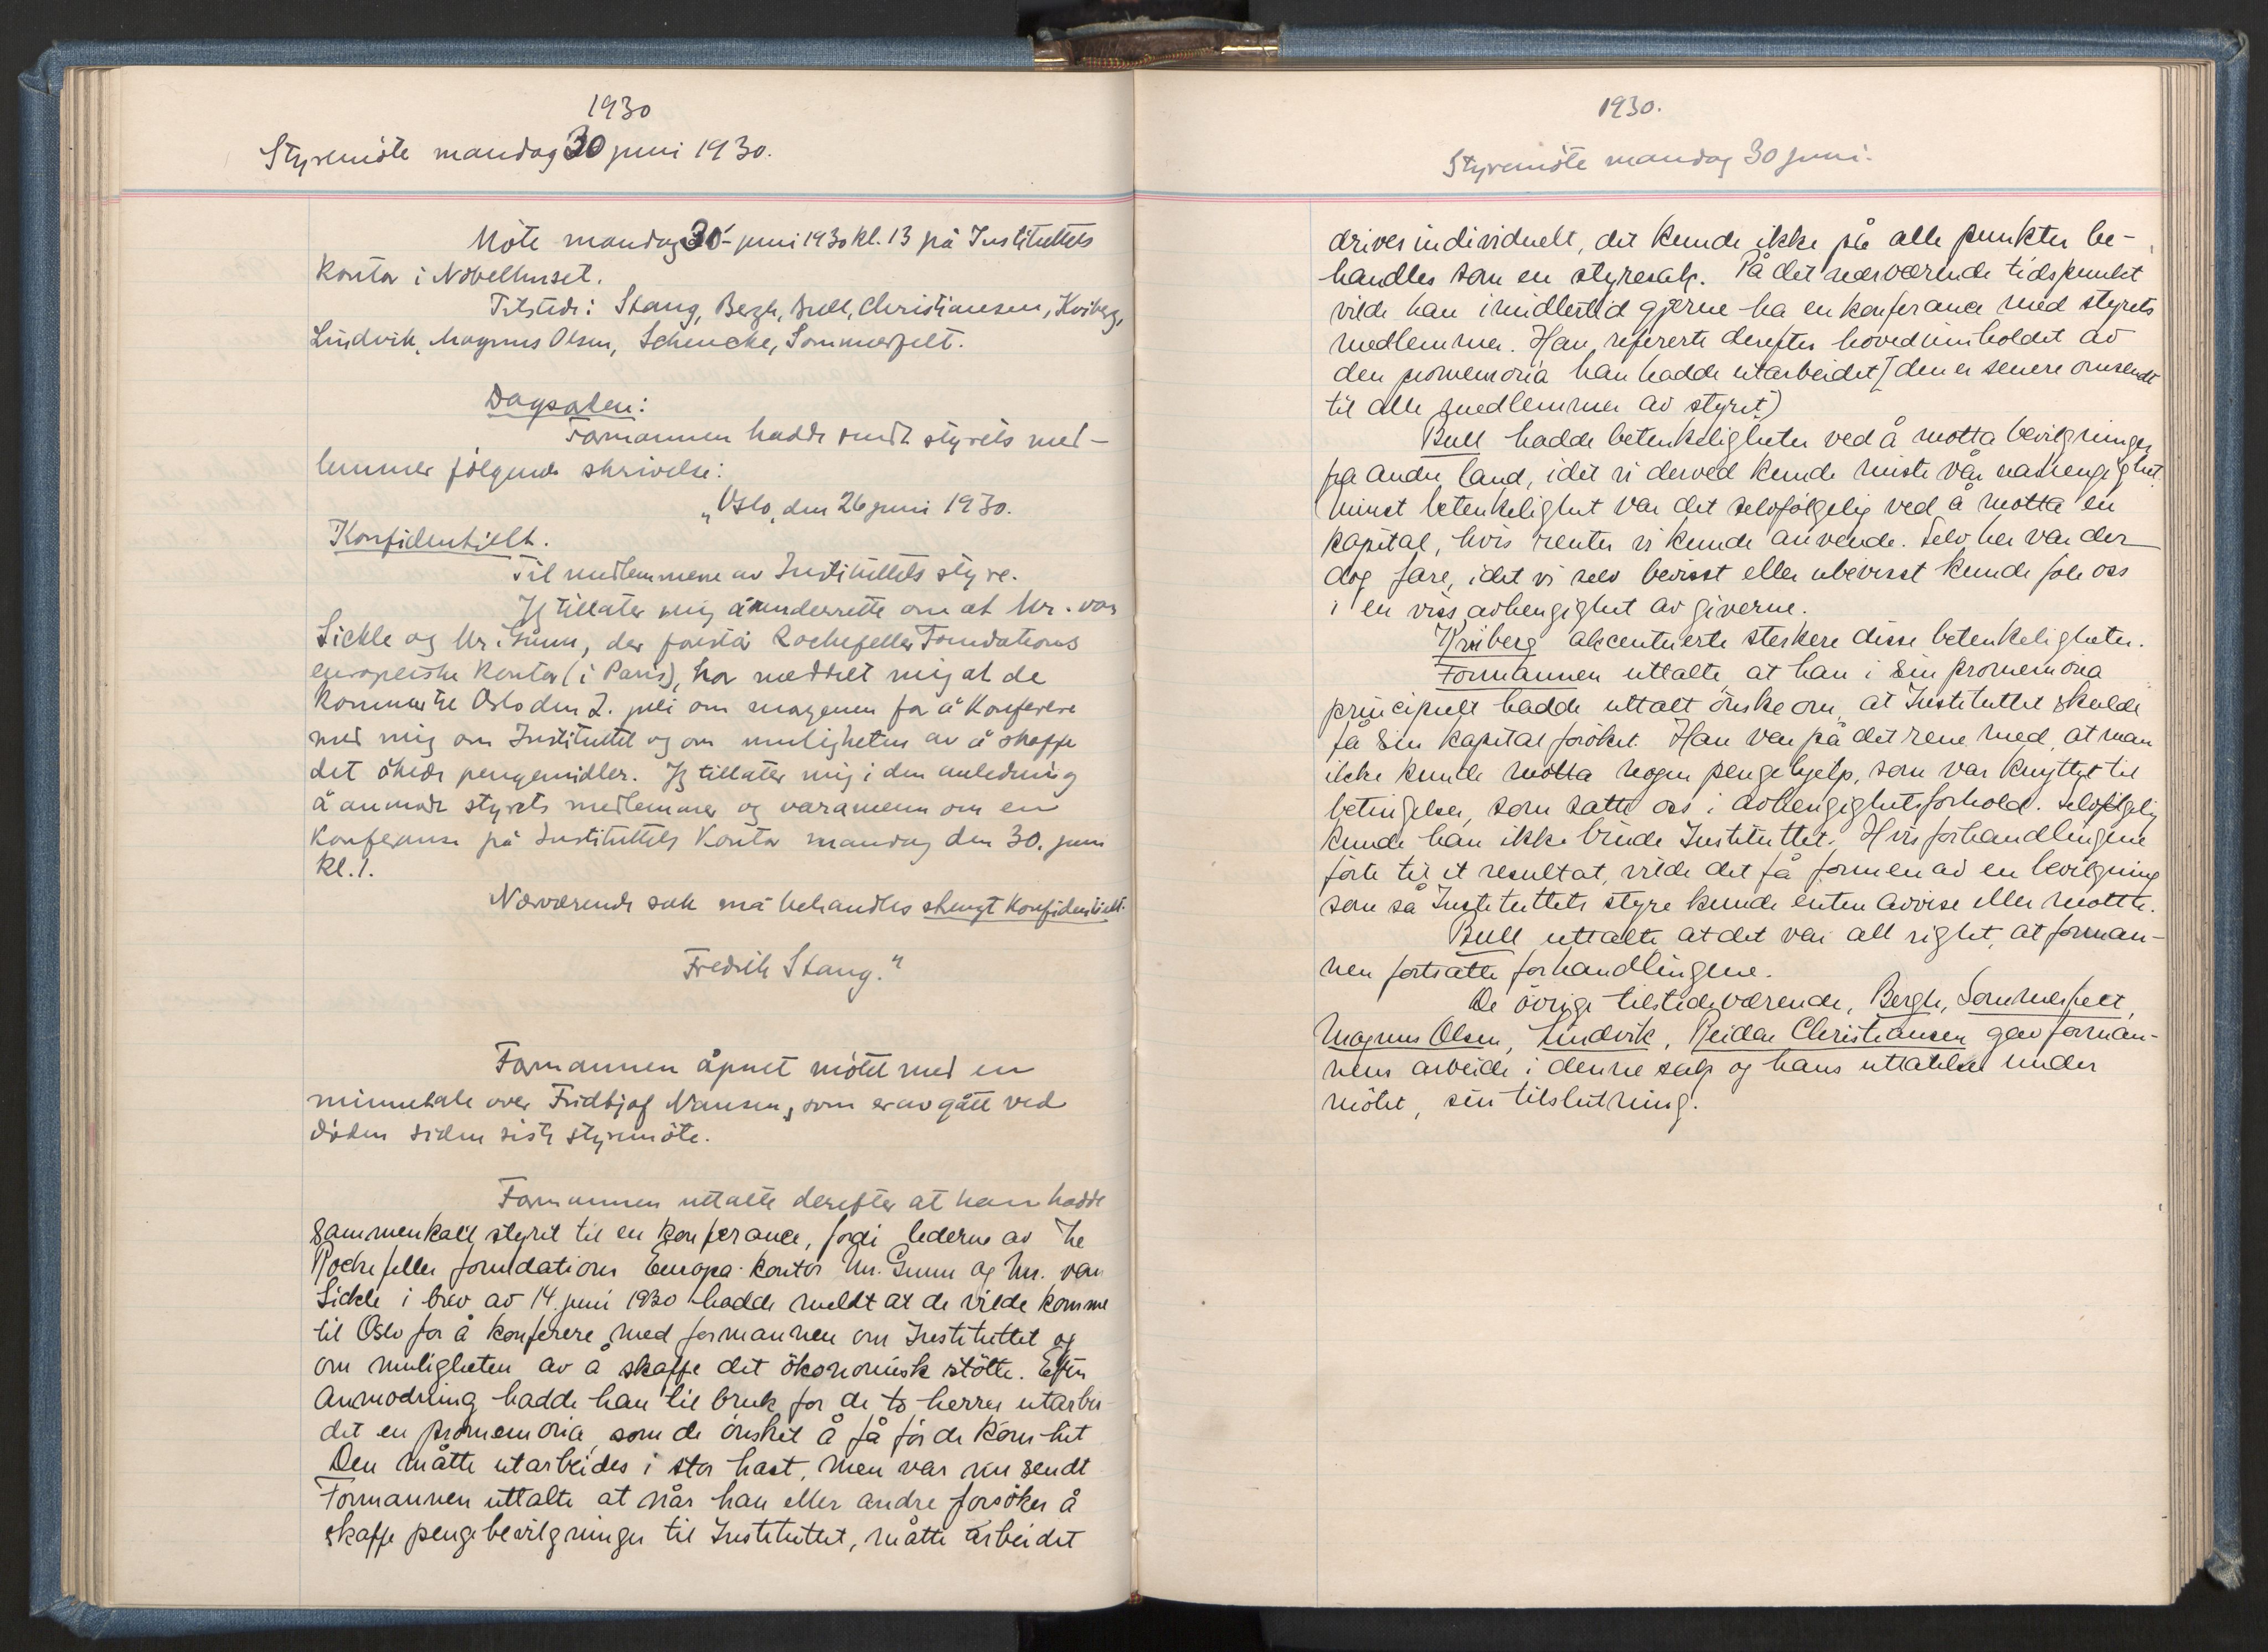 1930
Styremöte mandag 30 juni 1930.
Möte mandag 30 juni 1930 kl. 13 på Instituttets
Kontor i Nobelhuset.
Tilstede: Stang, Bergh, Bull, Christiansen, Kviberg,
Lindvik, Magnus Olsen, Schencke, Sommerfelt.
Dagsorden:
Formannen hadde sendt styrets med-
lemmer fölgende skrivelse:
„Oslo, den 26 juni 1930.
Konfidentielt.
Til medlemmene av Instituttets styre.
Jeg tillater mig å underrette om at Mr. van
Sickle og Mr. Gunn, der forestår Rockefeller Foundations
europeiske Kontor (i Paris), har meddelt mig at de
kommer til Oslo den 2. juli om morgenen for å Konferere
med mig om Instituttet og om muligheten av å skaffe
det ökede pengemidler. Jeg tillater mig i den anledning
å anmode styrets medlemmer og varamenn om en
Konferanse på Instituttets Kontor mandag den 30. juni
kl. 1.
Nærværende sak må behandles strengt Konfidentielt.
Fredrik Stang."
Formannen åpnet mötet med en
minnetale over Fridtjof Nansen, som er avgått ved
döden siden siste styremöte.
Formannen uttalte derefter at han hadde
sammenkalt styret til en konferance, fordi lederne av The
Rockefeller foundations Europa-kontor Mr. Gunn og Mr. van
Sickle i brev av 14. juni 1930 hadde meldt at de vilde komme
til Oslo for å konferere med formannen om Instituttet og
om muligheten av å skaffe det ökonomisk stötte. Efter
anmodning hadde han til bruk for de to herrer utarbei-
det en promemoria, som de önsket å få för de kom hit
Den måtte utarbeides i stor hast, men var nu sendt
Formannen uttalte at når han eller andre forsöker å
skaffe pengebevilgninger til Instituttet, måtte arbeidet
1930.
Styremöte mandag 30 juni.
drives individuelt, det kunde ikke på alle punkter be-
handles som en styresak. På det nærværende tidspunkt
vilde han imidlertid gjerne ha en konferance med styrets
medlemmer. Han refererte derefter hovedinnholdet av
den promemoria han hadde utarbeidet (den er senere omsendt
til alle medlemmer av styret)
Bull hadde betenkeligheter ved å motta bevilgninger
fra andre land, idet vi derved kunde miste vår uavhengighet.
Minst betenkelighet var det selvfölgelig ved å motta en
kapital, hvis renter vi kunde anvende. Selv her var der
dog fare, idet vi selv bevisst eller ubevisst kunde föle oss
i en viss avhengighet av giverne.
Kviberg akcentuerte sterkere disse betenkeligheter.
Formannen uttalte, at han i sin promemoria
principielt hadde uttalt önske om, at Instituttet skulde
få sin kapital foröket. Han var på det rene med, at man
ikke kunde motta nogen pengehjelp, som var knyttet til
betingelser, som satte oss i avhengighetsforhold. Selvfölgelig
kunde han ikke binde Instituttet. Hvis forhandlingene
förte til et resultat, vilde det få formen av en bevilgning
som så Instituttets styre kunde enten avvise eller motta.
Bull uttalte at det var all right, at forman-
nen fortsatte forhandlingene.
De övrige tilstedeværende, Bergh, Sommerfelt,
Magnus Olsen, Lindvik, Reidar Christiansen gav forman-
nens arbeide i denne sak og hans uttalelser under
mötet, sin tilslutning.